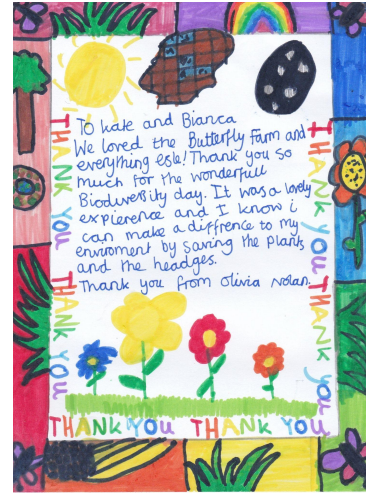 To Kate and Bianca
We loved the Butterfly Farm and
everything esle! Thank you so
much for the wonderfull
Biodiversity day. It was a lovely
expierence and I know i
can make a diffrence to my
enviroment by saving the plants
and the headges.
Thank you from Olivia Nolan.
THANK YOU THANK YOU
THANK YOU THANK YOU
THANK YOU THANK YOU